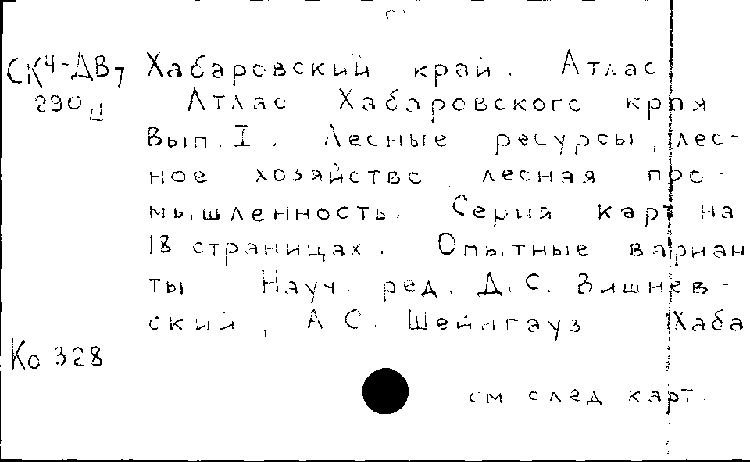 СК4-ДВ7 Хабаровский край. Атлас
290ц Атлас Хабаровского края
Вып. I. Лесные ресурсы, лес-
ное хозяйство, лесная про-
мышленность. Серия карт на
18 страницах. Опытные вариан
ты Науч. ред. Д.С. Вишнев-
ский, А.С. Шейнгауз Хаба
Ко 328
см след карт.